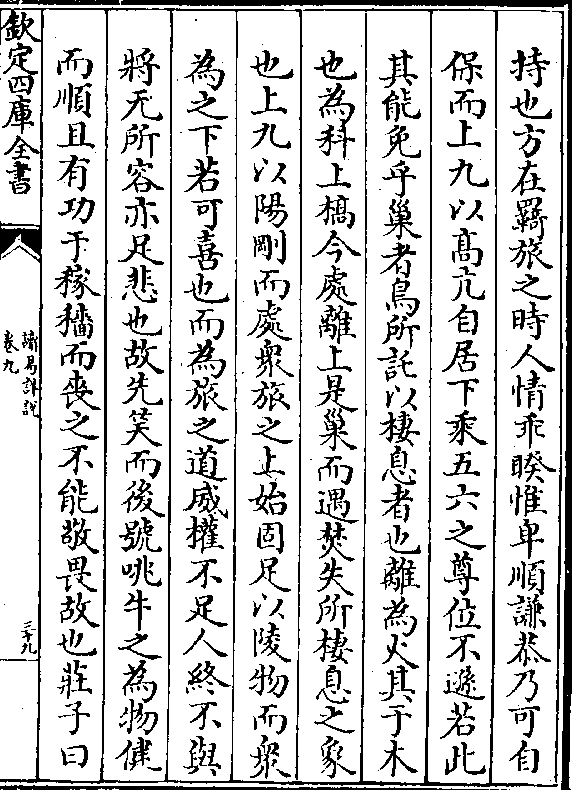 持也方在羇旅之時人情乖睽惟卑順謙恭乃可自
保而上九以髙亢自居下乘五六之尊位不遜若此
其能免乎巢者鳥所託以棲息者也離為火其于木
也為科上槁今處離上是巢而遇焚失所棲息之象
也上九以陽剛而處衆旅之上始固足以陵物而衆
為之下若可喜也而為旅之道威權不足人終不與
將无所容亦足悲也故先笑而後號咷牛之為物健
而順且有功于稼穡而喪之不能敬畏故也莊子曰
欽定四庫全書
讀易詳說
卷九
三十九